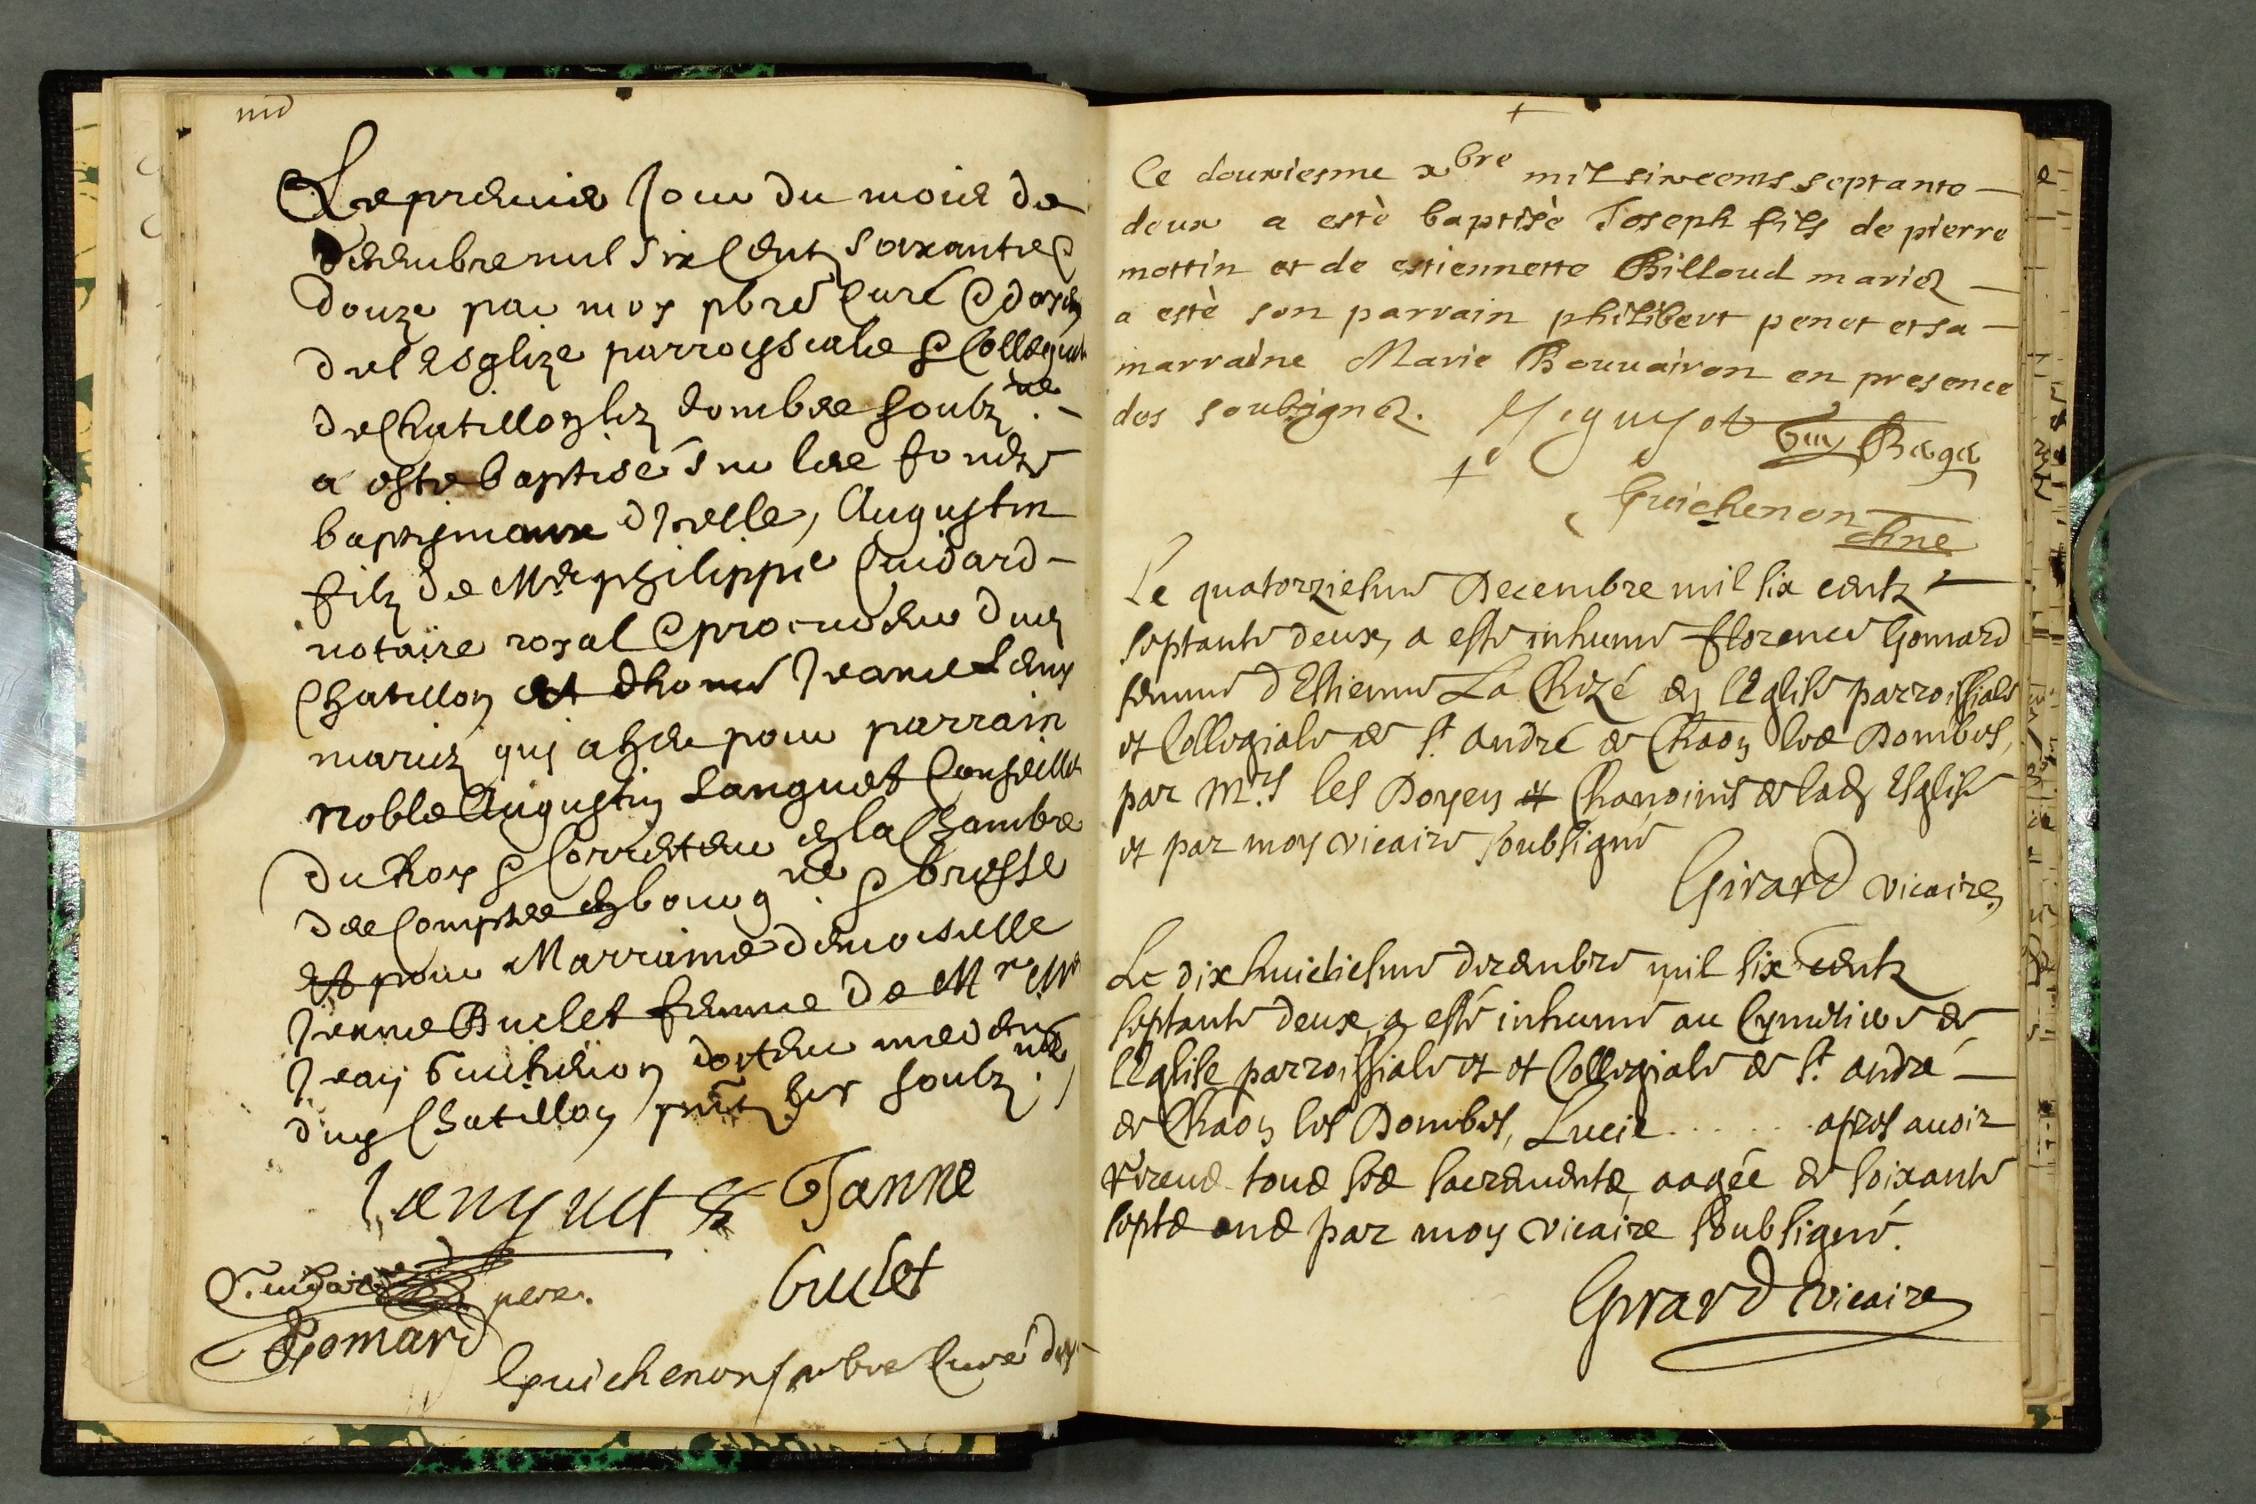 Le premier Jour du mois de
decembre mil six Centz soixante et
douze par moy pbre Curé et doyen
de lesglize parroyssiale et Collegial
de Chatillon lez dombes soubz.né
a esté baptisé sur les fondz
baptismaux dicelle, Augustin
filz de Me philippe Cuidard
notaire royal et procureur dud
Chatillon et dhon Jeanne
mariez qui a heu pour parrain
noble Augustin Languet Conseiller
du Roy et Correcteur en la Chambre
des Comptes en bourg.ne et bresse
et pour Marraine demoiselle
Jeanne Buclet femme de Mr Me
Jean Guichenon docteur medecin
dud Chatillon pntz les soubz.nez
Languet Janne
Cuidard pere. buclet
Gomard
Guichenon pbre Curé doy
Ce douziesme xbre mil six cents septante
deux a estè baptisè Joseph fils de pierre
mottin et de estiennette Billoud mariez
a estè son parrain philibert penet et sa
marraine Marie Bouvairon en presence
des soubsignez. Guy Baga
Guichenon
chne
Le quatorziesme Decembre mil six centz
septante deux, a esté inhumé florence Gomard
femme d'Estienne La Chizé en l'Eglise parroissiale
et Collegiale de St. André de Chaon les Dombes,
par Mrs les Doyen et Chanoines de lad Esglise
et par moy vicaire soubsigné
Girard vicaire
Le dixhuictiesme decembre mil six centz
septante deux, a esté inhumé au Cymetiere de
l'Eglise parroissiale et et Collegiale de St. André
de Chaon les Dombes, Lucie . . . . . . apres auoir
receue tous les sacrements, aagée de soixante
septs ans par moy vicaire soubsigné.
Girard vicaire